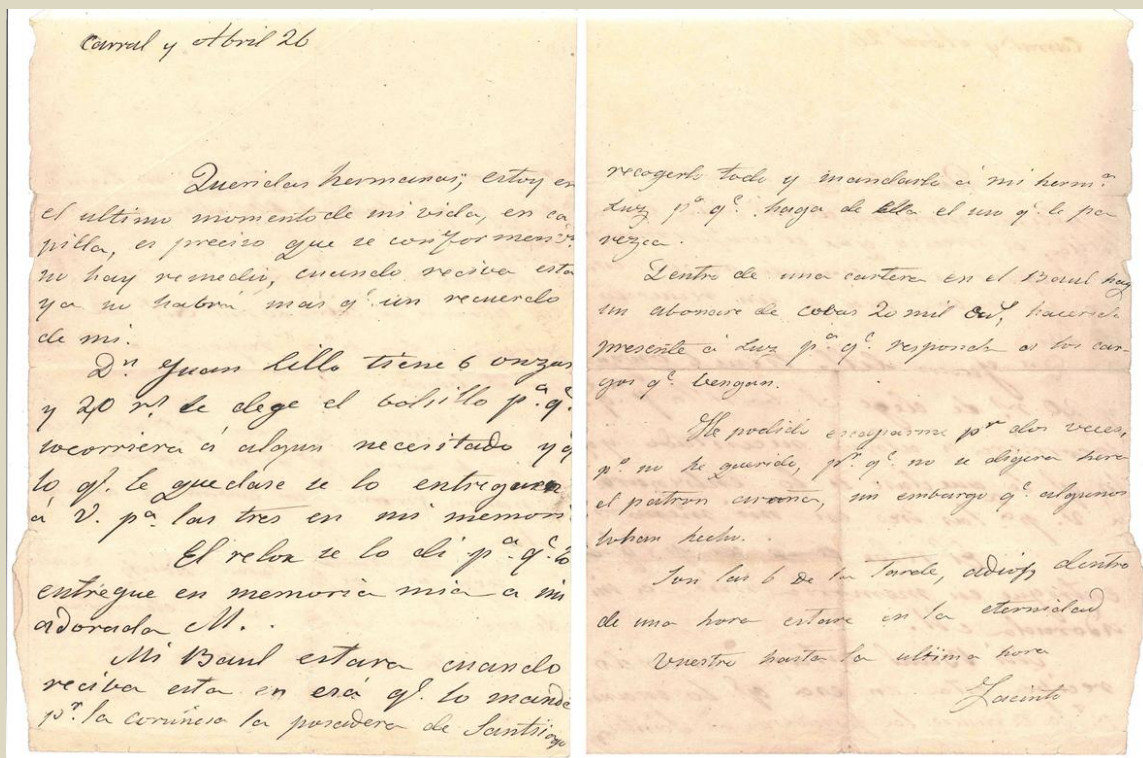 Carral y Abril 26
Queridas hermanas; estoy en
el ultimo momento de mi vida, en ca
pilla, es preciso que se conformen
no hay remedio, cuando reciva esta
ya no habrá mas q.e un recuerdo
de mi.
D.n Juan Lillo tiene 6 onzas
y 20 r.s le dege el bolsillo p.a q.e
socorriera á algun necesitado y q
lo q.e le quedase se lo entreguen
á V. p.a las tres en mi memoria
El relox se lo di p.a q.e lo
entregue en memoria mia a mi
adorada M.
Mi Baul estara cuando
reciva esta en esá q.e lo mandé
p.r la coruñesa la posadera de Santiago
recogerlo todo y mandarlo á mi herm.a
Luz p.a q.e haga de ella el uso q.e le pa
rezca.
Dentro de una cartera en el Baul hay
un abonaré de cobas 20 mil hacerle
presente á Luz p.a q.e responda os los car-
gos q.e bengan.
He podido escaparme p.r dos veces,
p.o no he querido, p.r q.e no se digera hera
el patron araña, sin embargo q.e algunos
lohan hecho.
Son las 6 de la Tarde, adios, dentro
de una hora estare en la eternidad
Vuestro hasta la ultima hora
Jacinto